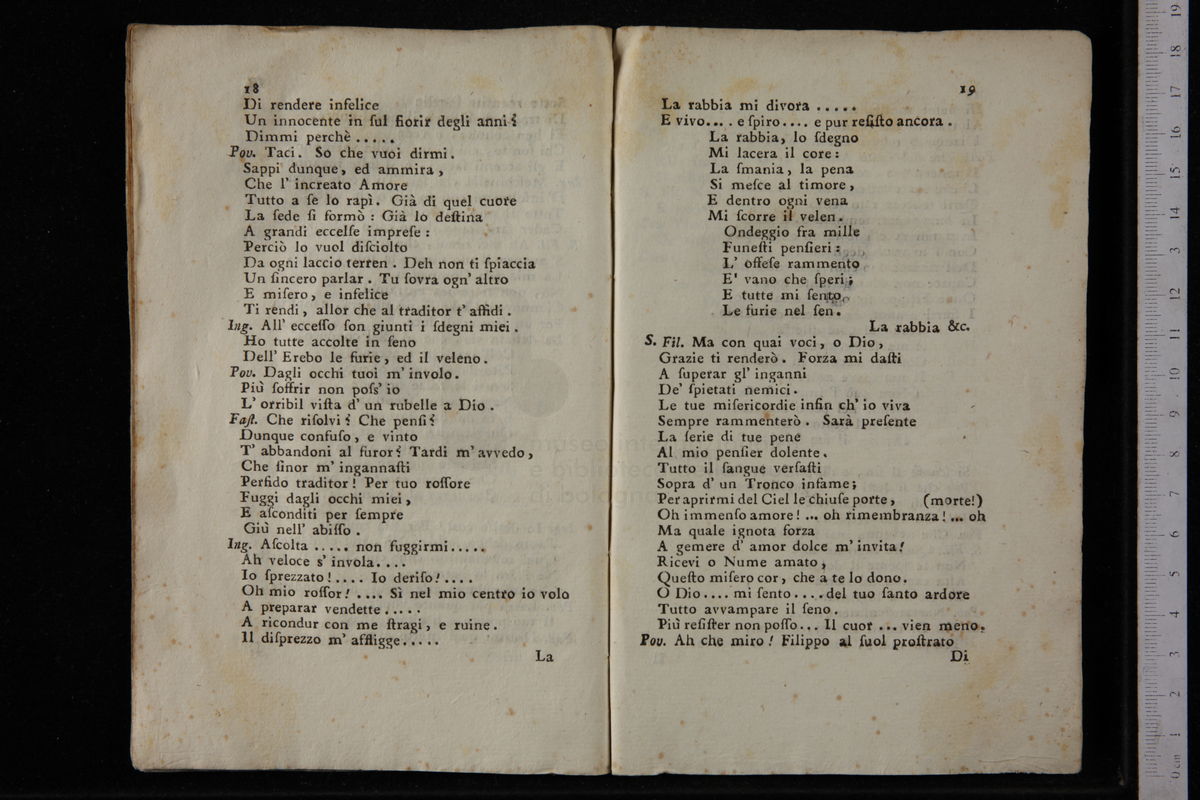 18
Di rendere infelice
Un innocente in ſul fiorir degli anni?
Dimmi perchè .....
Pov. Taci. So che vuoi dirmi.
Sappi dunque, ed ammira,
Che l' increato Amore
Tutto a ſe lo rapì. Già di quel cuore
La ſede ſi formò : Già lo deſtina
A grandi eccelſe impreſe :
Perciò lo vuol diſciolto
Da ogni laccio terren . Deh non ti ſpiaccia
Un ſincero parlar . Tu ſovra ogn' altro
E miſero, e infelice
Ti rendi, allor che al traditor t' affidi .
Ing. All' ecceſſo ſon giunti i ſdegni miei .
Ho tutte accolte in ſeno
Dell' Erebo le furie, ed il veleno.
Pov. Dagli occhi tuoi m' involo.
Più ſoffrir non poſs' io
L' orribil viſta d' un rubelle a Dio .
Faſt. Che riſolvi? Che penſi?
Dunque confuſo, e vinto
T' abbandoni al furor? Tardi m' avvedo,
Che ſinor m' ingannaſti
Perfido traditor! Per tuo roſſore
Fuggi dagli occhi miei,
E aſconditi per ſempre
Giù nell' abiſſo .
Ing. Aſcolta ..... non fuggirmi.....
Ah veloce s' invola....
Io ſprezzato!.... Io deriſo!....
Oh mio roſſor! .... Sì nel mio centro io volo
A preparar vendette.....
A ricondur con me ſtragi, e ruine.
Il diſprezzo m' affligge.....
La
19
La rabbia mi divora .....
E vivo.... e ſpiro.... e pur reſiſto ancora .
La rabbia, lo ſdegno
Mi lacera il core :
La ſmania, la pena
Si meſce al timore,
E dentro ogni vena
Mi ſcorre il velen.
Ondeggio fra mille
Funeſti penſieri :
L' offeſe rammento
E' vano che ſperi ;
E tutte mi ſento
Le furie nel ſen.
La rabbia &c.
S. Fil. Ma con quai voci, o Dio,
Grazie ti renderò . Forza mi daſti
A ſuperar gl' inganni
De' ſpietati nemici.
Le tue miſericordie infin ch' io viva
Sempre rammenterò . Sarà preſente
La ſerie di tue pene
Al mio penſier dolente.
Tutto il ſangue verſaſti
Sopra d' un Tronco infame;
Per aprirmi del Ciel le chiuſe porte, (morte!)
Oh immenſo amore! ... oh rimembranza! ... oh
Ma quale ignota forza
A gemere d' amor dolce m' invita!
Ricevi o Nume amato,
Queſto miſero cor, che a te lo dono.
O Dio.... mi ſento.... del tuo ſanto ardore
Tutto avvampare il ſeno.
Più reſiſter non poſſo... Il cuor ... vien meno.
Pov. Ah che miro! Filippo al ſuol proſtrato
Di